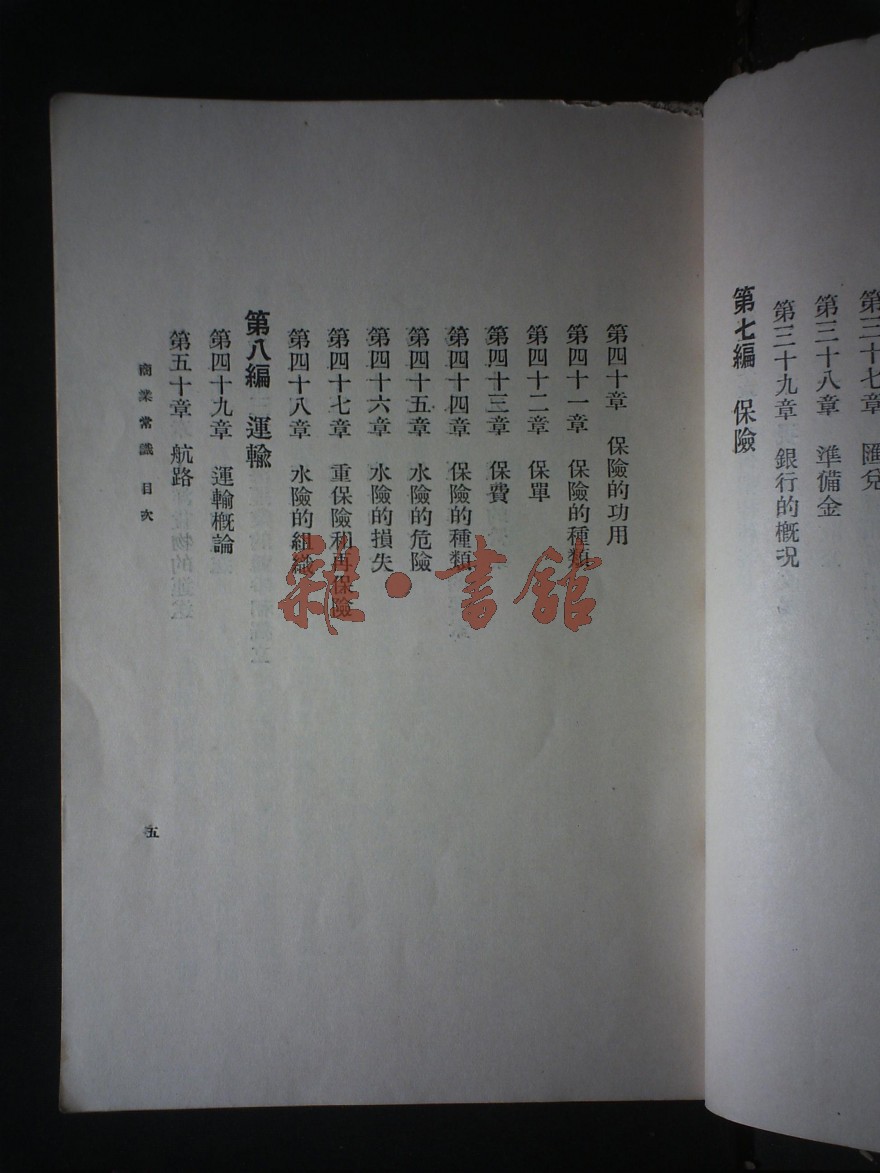 第三十七章 匯兌
第三十八章 準備金
第三十九章 銀行的概況
第七編 保險
第四十章 保險的功用
第四十一章 保險的種類
第四十二章 保單
第四十三章 保費
第四十四章 保險的種類
第四十五章 水險的危險
第四十六章 水險的損失
第四十七章 重保險和再保險
第四十八章 水險的組織
第八編 運輸
第四十九章 運輸概論
第五十章 航路
商業常識 目次
五
雜·書館